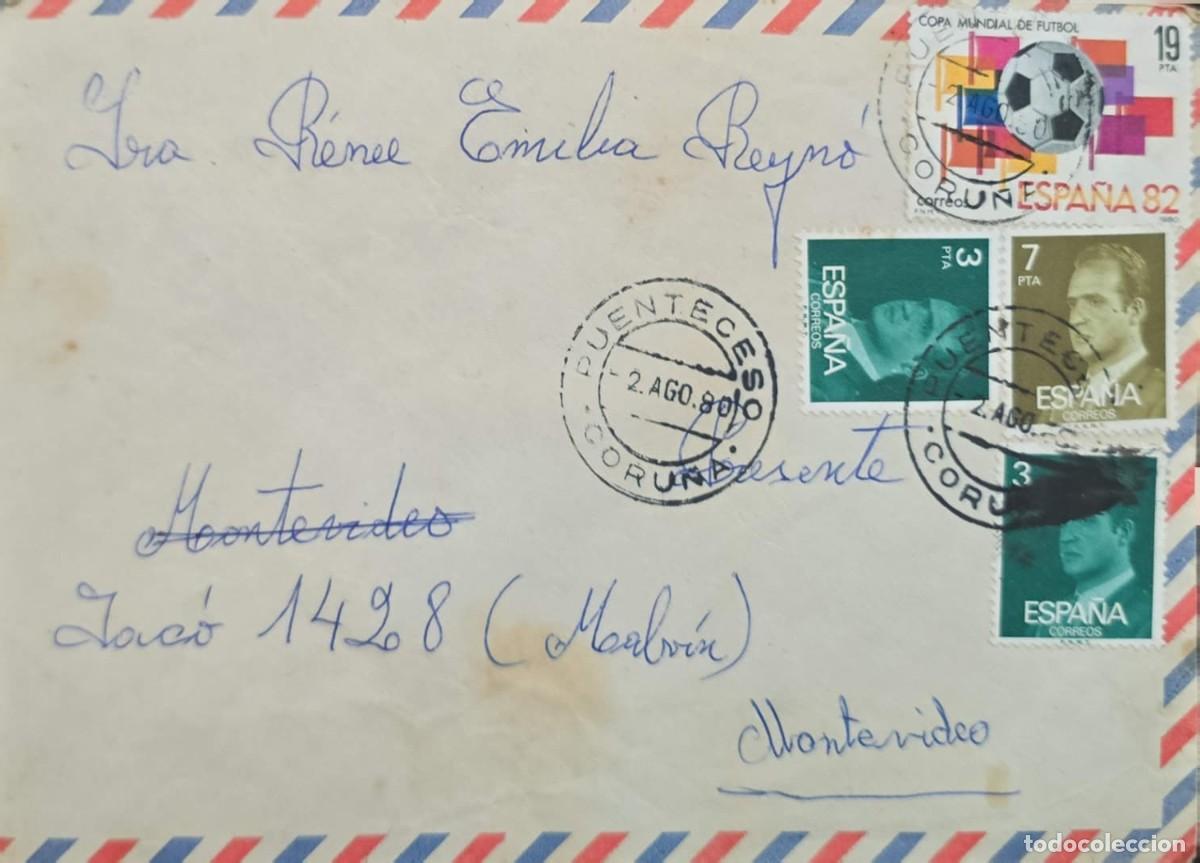 COPA MUNDIAL DE FUTBOL
19
PTA
correos
ESPAÑA 82
1980
Sra Rénee Emilia Reynó
3
PTA
ESPAÑA
CORREOS
7
PTA
ESPAÑA
CORREOS
PUENTECESO
-2.AGO.80
CORUÑA
Presente
3
ESPAÑA
CORREOS
Montevideo
Iacó 1428 (Malvín)
Montevideo
PUENTEC
-2.AGO
CORU
PUE
-2 AGO
CORUÑ
todocoleccion